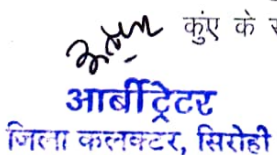 कुंए के
आर्बीट्रेटर
जिला कलक्टर, सिरोही